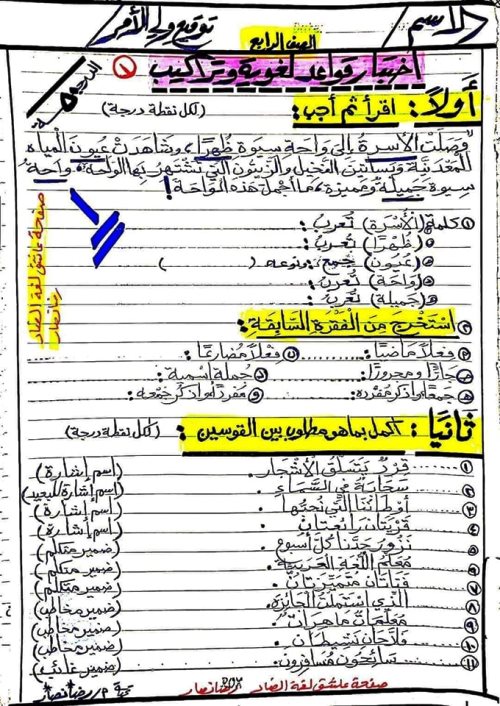 الاسم / توقيع ولي الأمر /
الصف الرابع
اختبار قواعد لغوية وتراكيب ١
الدرجة
أولاً: اقرأ ثم أجب: (لكل نقطة درجة)
"وَصَلَتْ الأسرةُ إلى واحة سيوة ظُهرًا، وشاهَدَتْ عيونَ المياه
المعدنية وبساتين النخيل والزيتون التي تشتهر بها الواحة، واحة
سيوة جميلة ومميزة، ما أجملَ هذه الواحة!"
① كلمة (الأسرة) تُعرب:
(ظُهْرًا) تُعرب:
(عيون) جمع: ونوعه ( )
(واحة) تُعرب:
(جميلة) تعرب:
② استخرج من الفقرة السابقة:
فعلاً ماضيًا: فعلاً مضارعًا:
جارًا ومجرورًا: جملة اسمية:
جمعًا واذكر مفرده: مفردًا واذكر جمعه:
ثانيًا: أكمل بما هو مطلوب بين القوسين: (لكل نقطة درجة)
① قردٌ يتسلق الأشجار. (اسم إشارة)
② سحابةٌ في السماء. (اسم إشارة للبعيد)
③ أوطاننا التي نحبها. (اسم إشارة)
④ قريتان رائعتان. (اسم إشارة)
⑤ نزور جدتنا كل أسبوع. (ضمير متكلم)
⑥ معلم اللغة العربية. (ضمير متكلم)
⑦ فتاتان متميزتان. (ضمير متكلم)
⑧ الذي استلمت الجائزة. (ضمير مخاطب)
⑨ معلمات ماهرات. (ضمير مخاطب)
⑩ فلاحان نشيطان. (ضمير مخاطب)
⑪ سائحون مسافرون. (ضمير غائب)
صفحة عاشق لغة الضاد رضا نصار
صفحة عاشق لغة الضاد رضا نصار
رضا نصار